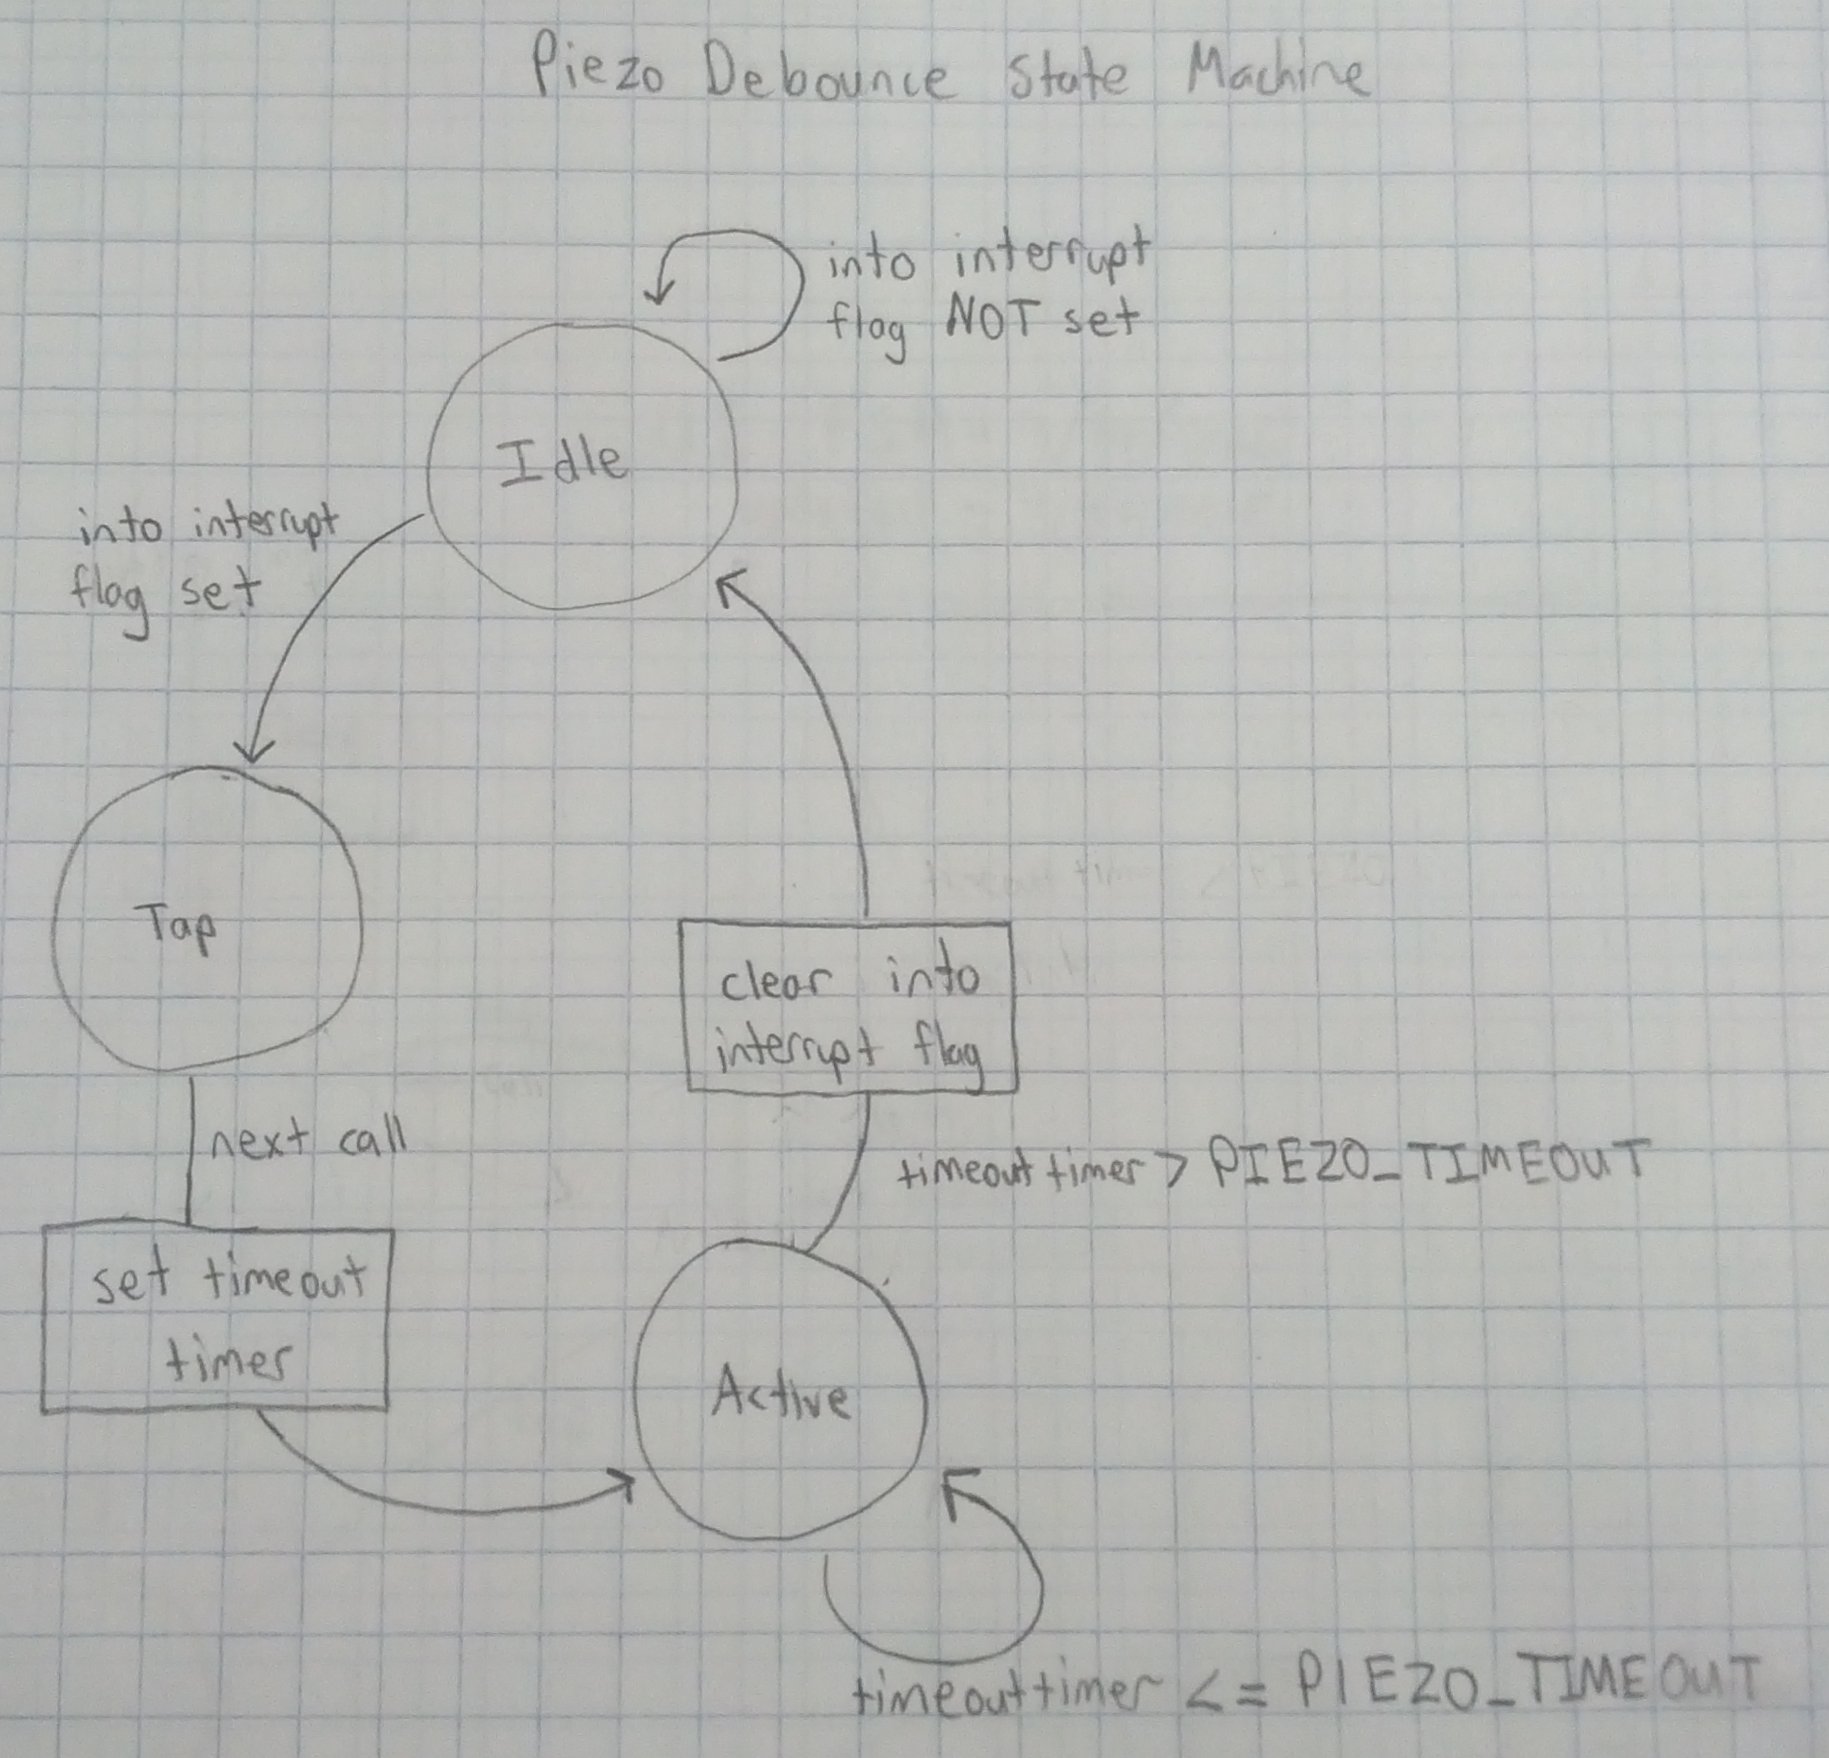 Piezo Debounce State Machine
into interrupt
flag NOT set
Idle
into interrupt
flag set
Tap
clear into
interrupt flag
next call
timeout timer > PIEZO_TIMEOUT
set timeout
timer
Active
timeout timer <= PIEZO_TIMEOUT